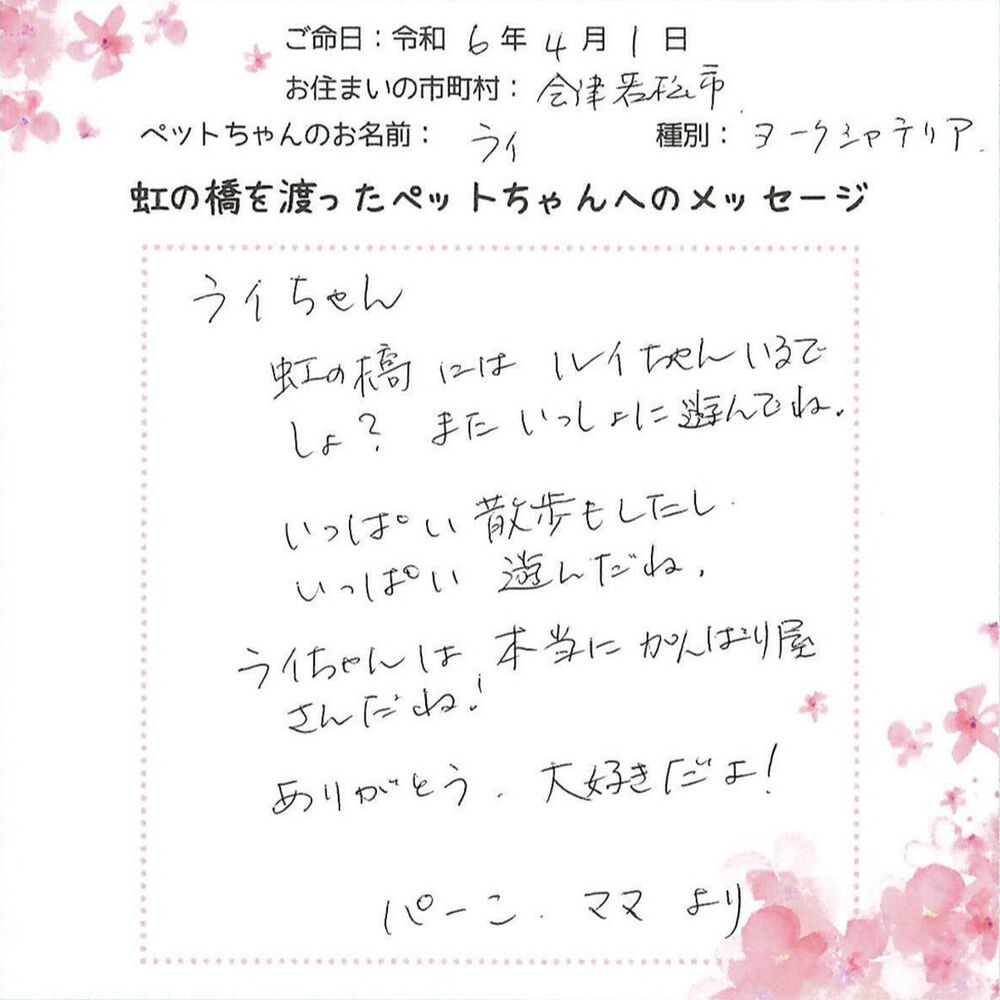 ご命日：令和 6 年 4 月 1 日
お住まいの市町村： 会津若松市
ペットちゃんのお名前： ライ 種別： ヨークシャテリア.
虹の橋を渡ったペットちゃんへのメッセージ
ライちゃん
虹の橋にはルイちゃんいるで
しょ？またいっしょに遊んでね.
いっぱい散歩もしたし.
いっぱい遊んだね.
ライちゃんは本当にがんばり屋
さんだね!
ありがとう. 大好きだよ!
パーこ. ママより